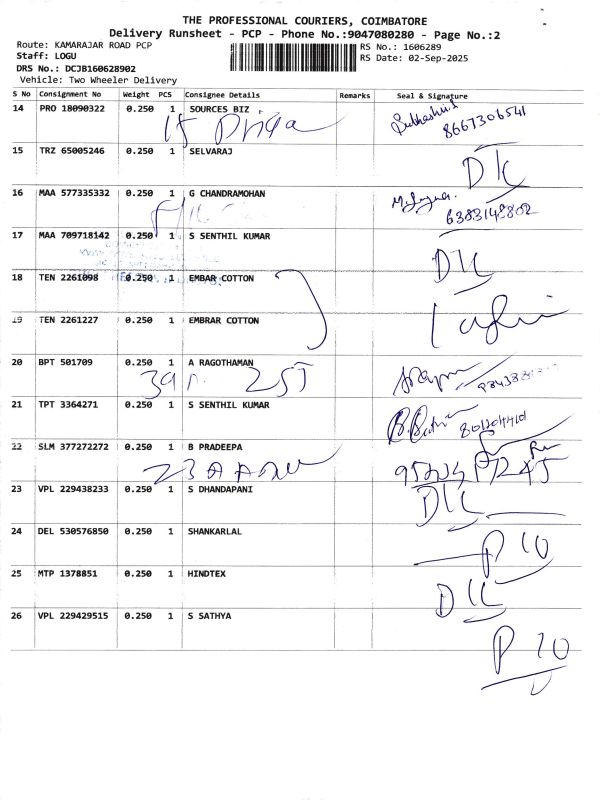 THE PROFESSIONAL COURIERS, COIMBATORE
Delivery Runsheet - PCP - Phone No.:9047080280 - Page No.:2
Route: KAMARAJAR ROAD PCP
Staff: LOGU
DRS No.: DCJB160628902
Vehicle: Two Wheeler Delivery
RS No.: 1606289
RS Date: 02-Sep-2025
S No Consignment No Weight PCS Consignee Details Remarks Seal & Signature
14 PRO 18090322 0.250 1 SOURCES BIZ
15 Priya
8667306541
15 TRZ 65005246 0.250 1 SELVARAJ
DK
16 MAA 577335332 0.250 1 G CHANDRAMOHAN
6383149802
17 MAA 709718142 0.250 1 S SENTHIL KUMAR
DK
18 TEN 2261098 0.250 1 EMBAR COTTON
19 TEN 2261227 0.250 1 EMBRAR COTTON
20 BPT 501709 0.250 1 A RAGOTHAMAN
21 TPT 3364271 0.250 1 S SENTHIL KUMAR
22 SLM 377272272 0.250 1 B PRADEEPA
23 VPL 229438233 0.250 1 S DHANDAPANI
DK
24 DEL 530576850 0.250 1 SHANKARLAL
P 10
25 MTP 1378851 0.250 1 HINDTEX
DK
26 VPL 229429515 0.250 1 S SATHYA
P 10